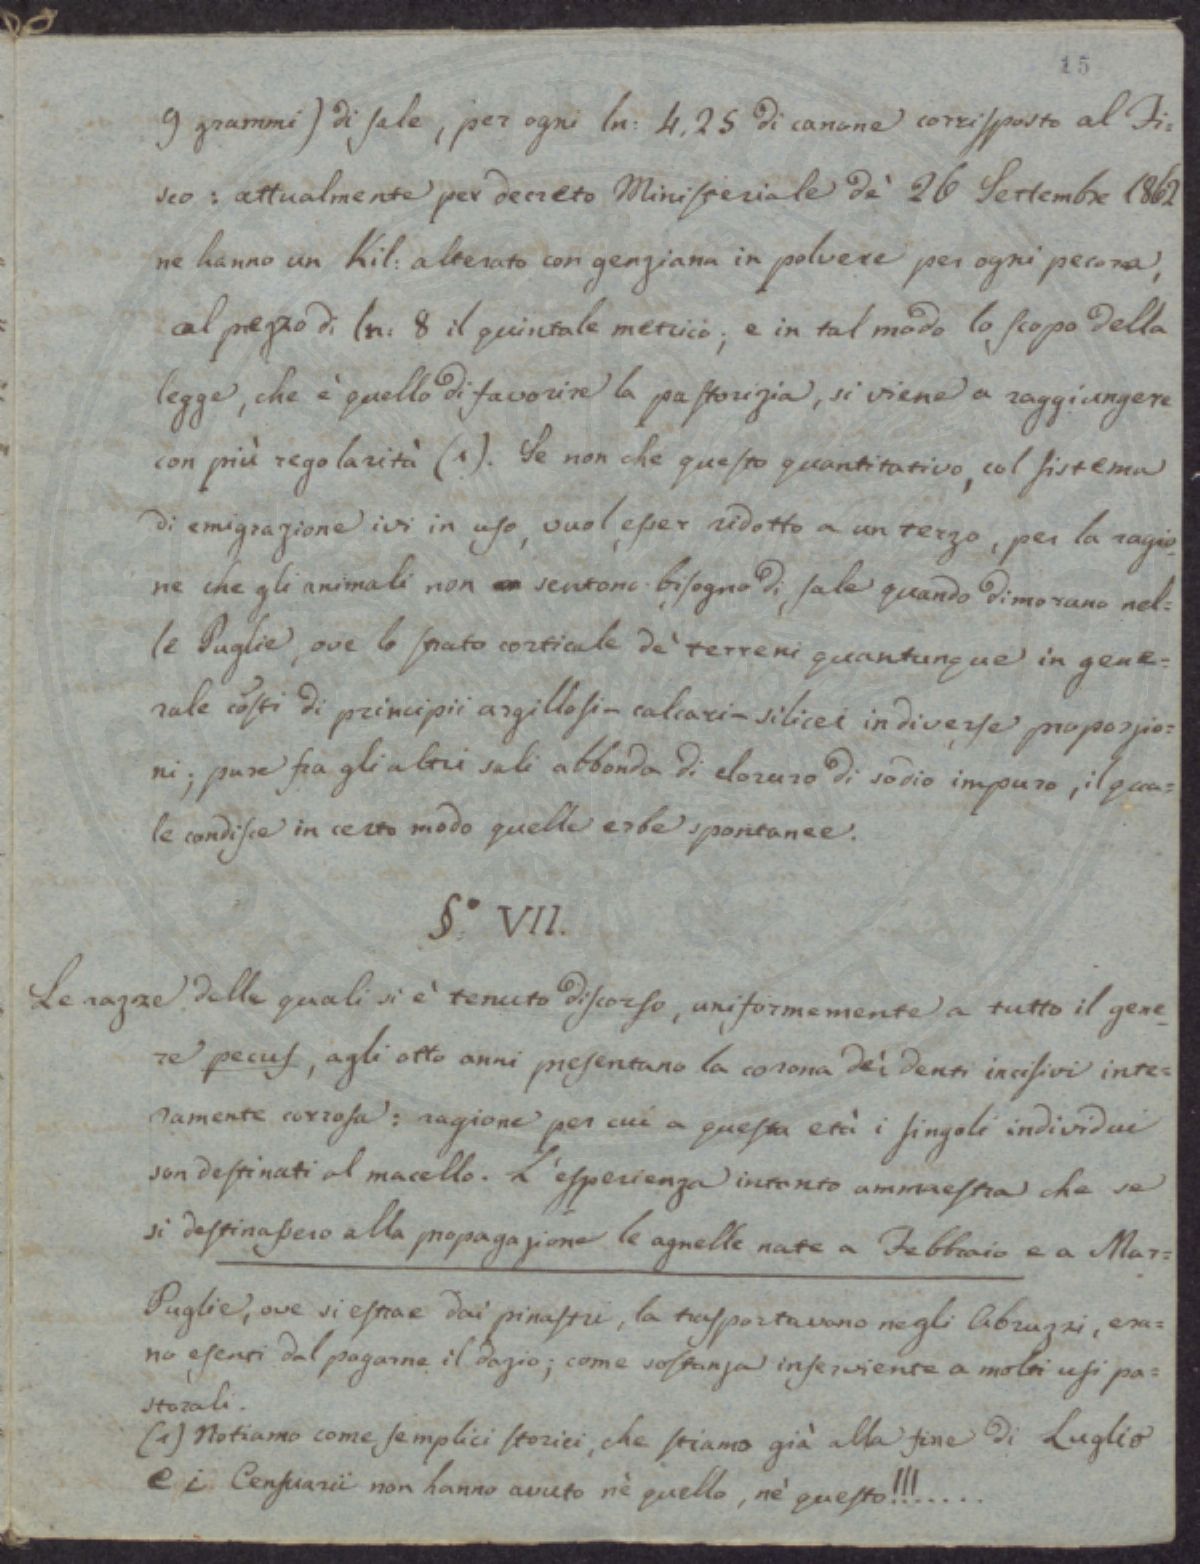 15
9 grammi) di sale, per ogni ln: 4,25 di canone corrisposto al Fi=
sco: attualmente per decreto Ministeriale de' 26 Settembre 1862
ne hanno un Kil: alterato con genziana in polvere per ogni pecora,
al prezzo di ln: 8 il quintale metrico; e in tal modo lo scopo della
legge, che è quello di favorire la pastorizia, si viene a raggiungere
con più regolarità (1). Se non che questo quantitativo, col sistema
di emigrazione ivi in uso, vuol esser ridotto a un terzo, per la ragio=
ne che gli animali non sentono bisogno di sale quando dimorano nel=
le Puglie, ove lo strato corticale de' terreni quantunque in gene=
rale costi di principii argillosi-calcari-silicei in diverse proporzio=
ni; pure fra gli altri sali abbonda di cloruro di sodio impuro, il qua=
le condisce in certo modo quelle erbe spontanee.
§.° VII.
Le razze delle quali si è tenuto discorso, uniformemente a tutto il gene=
re pecus, agli otto anni presentano la corona dei denti incisivi inte=
ramente corrosa: ragione per cui a questa età i singoli individui
son destinati al macello. L'esperienza intanto ammaestra che se
si destinassero alla propagazione le agnelle nate a Febbraio e a Mar=
Puglie, ove si estrae dai pinastri, la trasportavano negli Abruzzi, era=
no esenti dal pagarne il dazio; come sostanza inserviente a molti usi pa=
storali.
(1) Notiamo come semplici storici, che stiamo già alla fine di Luglio
e i Censuarii non hanno avuto nè quello, nè questo!!!.....